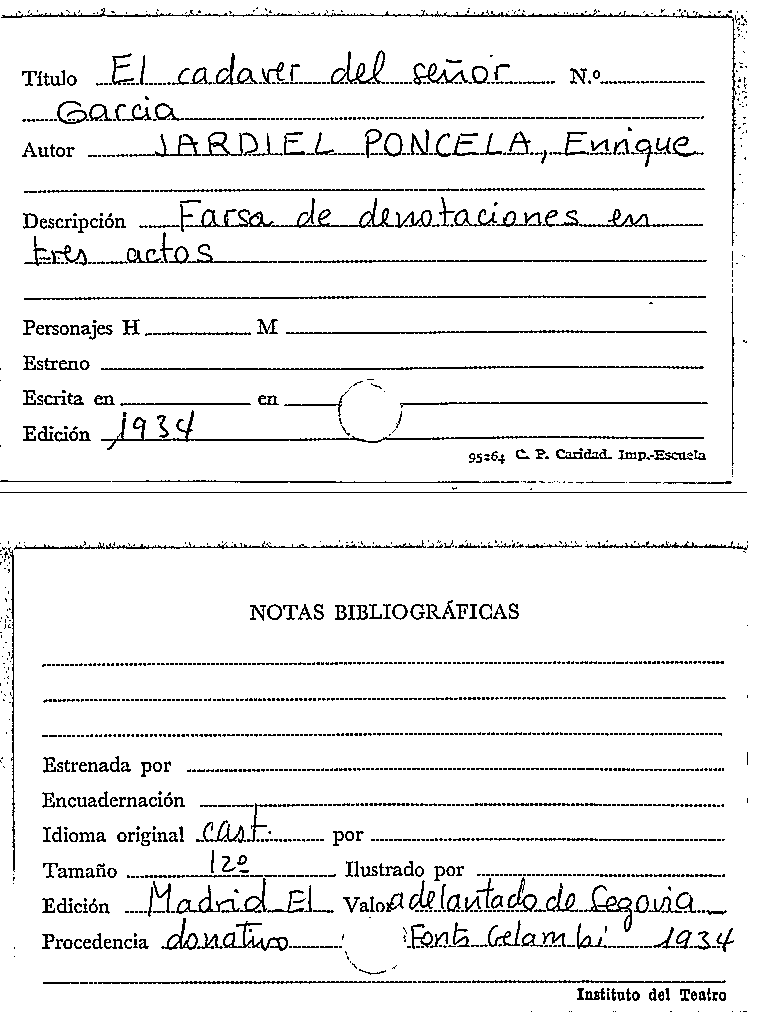 Título El cadaver del señor N.º
Garcia
Autor JARDIEL PONCELA, Enrique
Descripción Farsa de denotaciones en
tres actos
Personajes H M
Estreno
Escrita en en
Edición 1934
95264 C. P. Caridad. Imp.-Escuela
NOTAS BIBLIOGRÁFICAS
Estrenada por
Encuadernación
Idioma original cast. por
Tamaño 12º Ilustrado por
Edición Madrid El Valor adelantado de Segovia
Procedencia donativo Fonts 1934
Instituto del Teatro